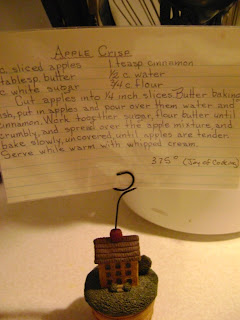 APPLE CRISP
c sliced apples 1 teasp. cinnamon
tablesp. butter 1/2 c water
c white sugar 3/4 c flour
Cut apples into 1/4 inch slices. Butter baking
ish, put in apples and pour over them water and
cinnamon. Work together sugar, flour butter until
crumbly, and spread over the apple mixture, and
bake slowly, uncovered, until apples are tender.
Serve while warm with whipped cream.
375° (Joy of Cooking)